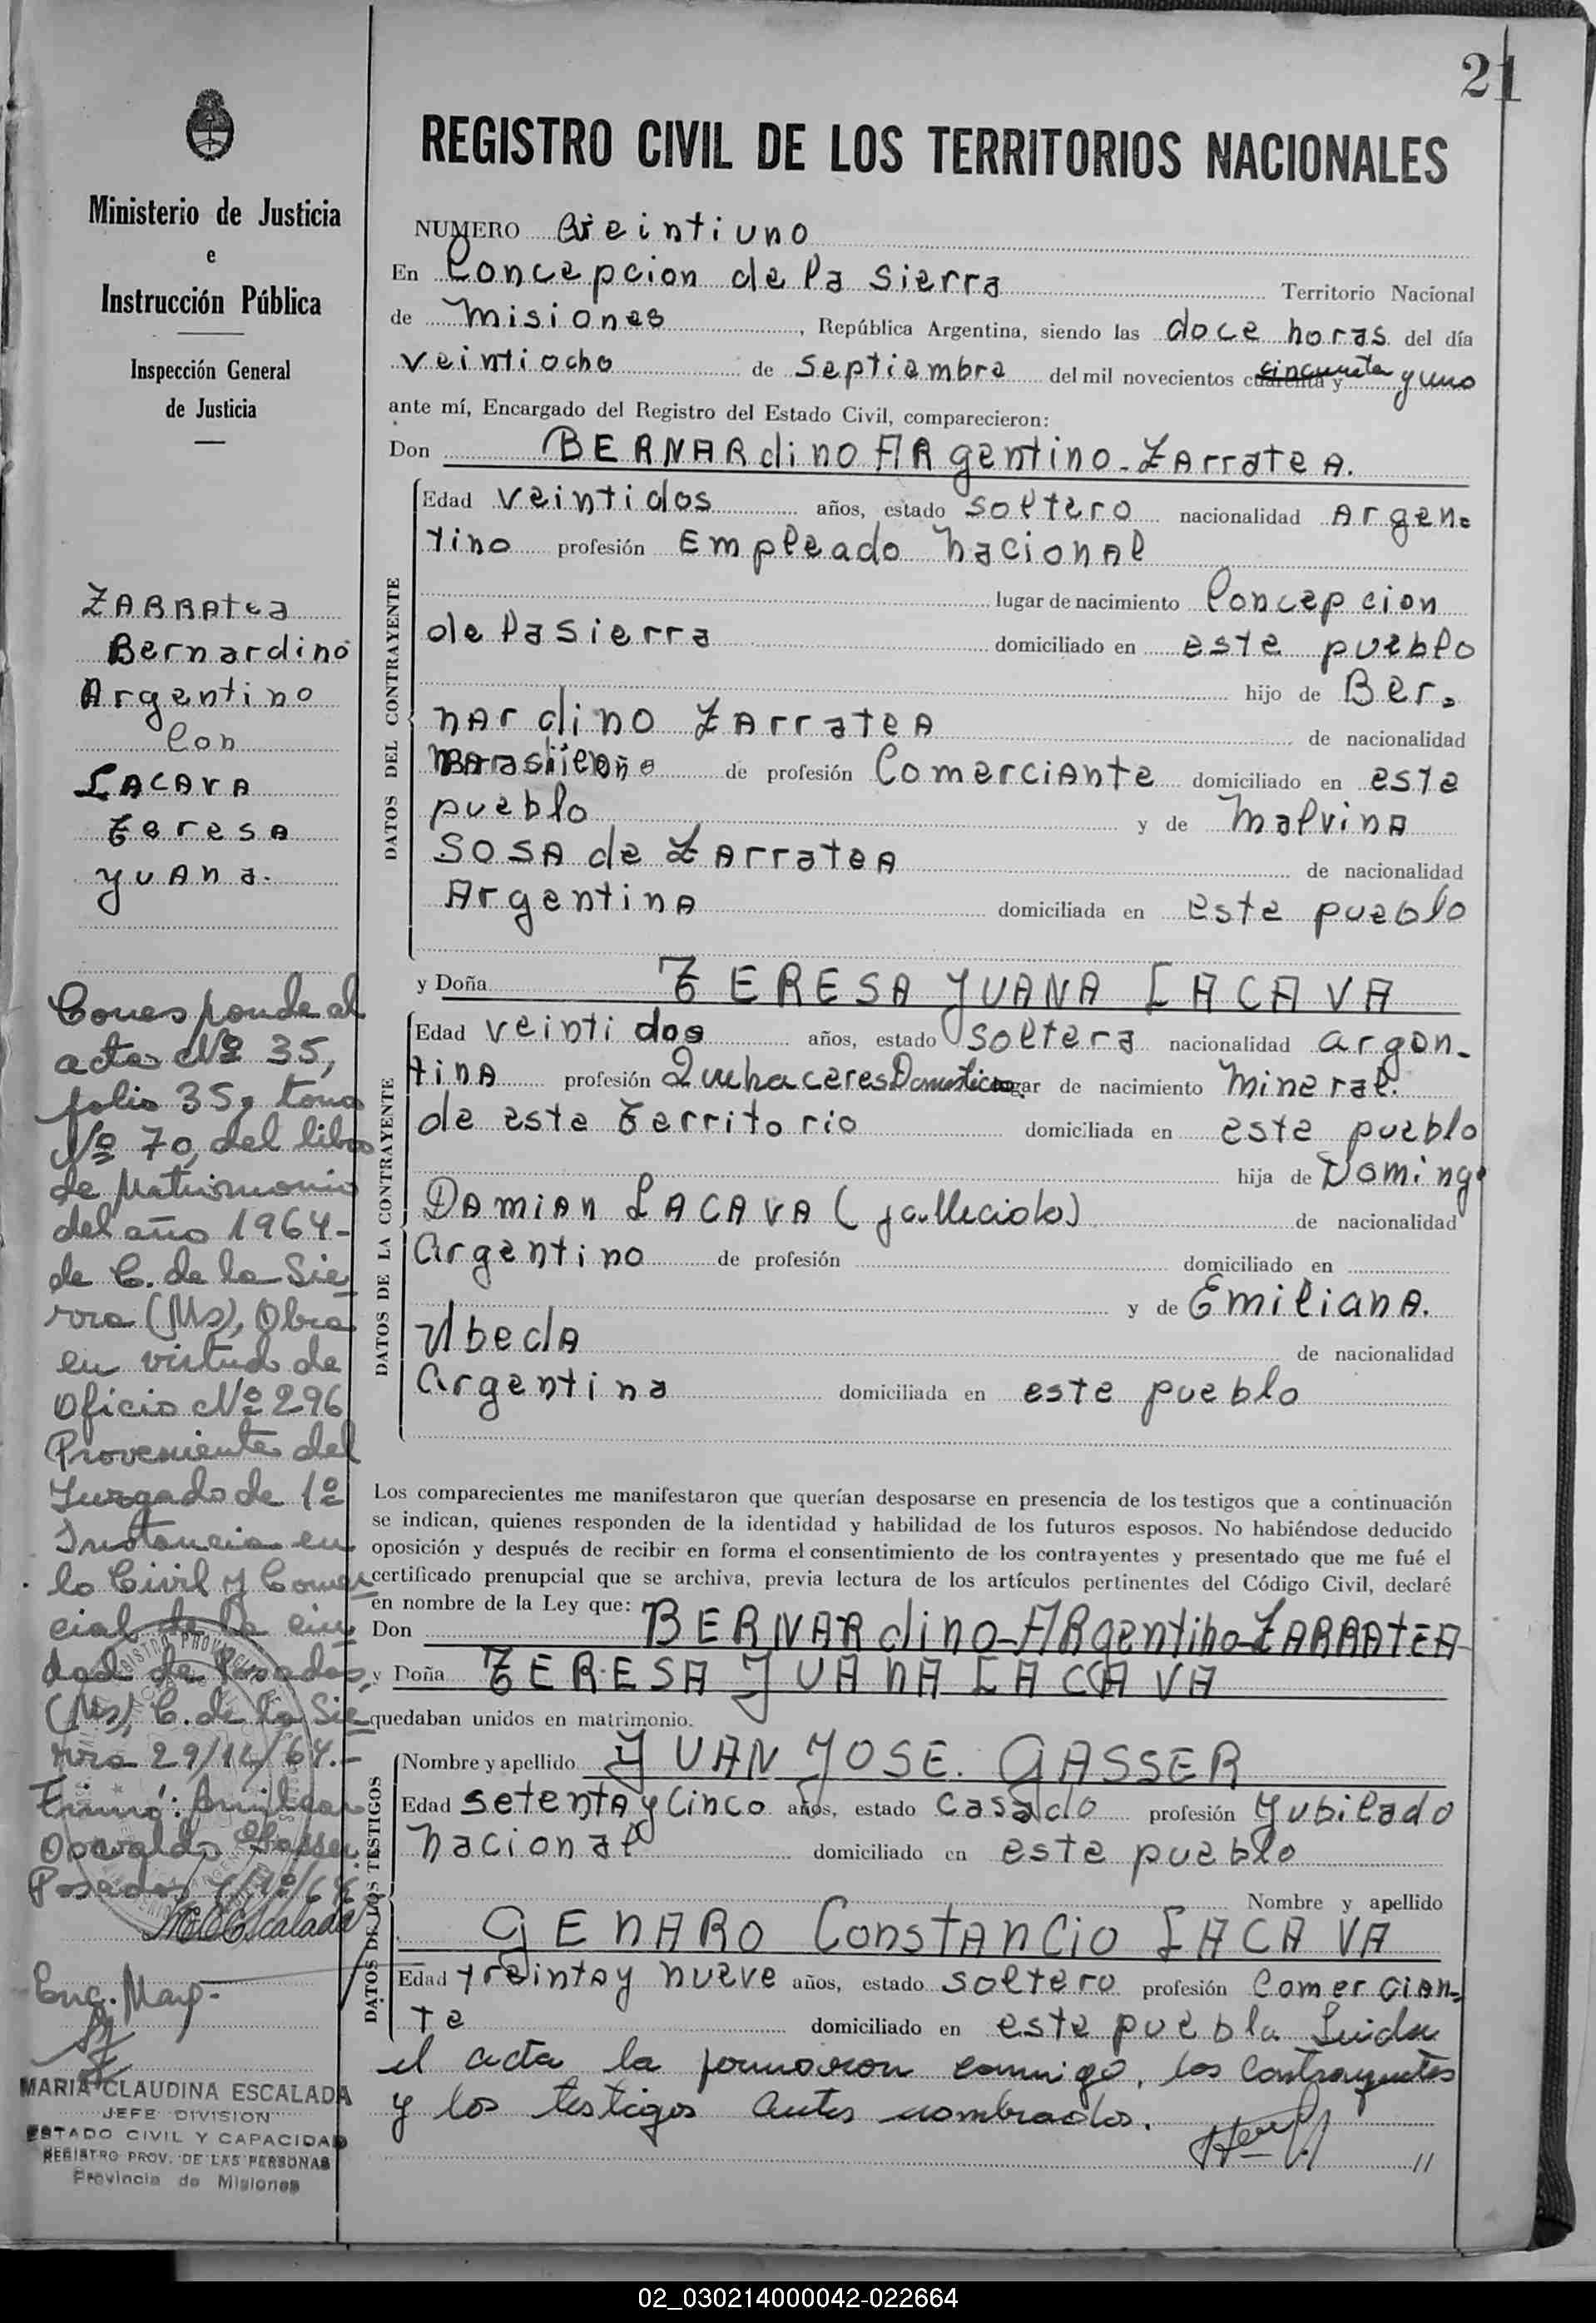 21
REGISTRO CIVIL DE LOS TERRITORIOS NACIONALES
Ministerio de Justicia
e
Instrucción Pública
Inspección General
de Justicia
NUMERO Veintiuno
En Concepcion de la Sierra Territorio Nacional
de Misiones, República Argentina, siendo las doce horas del día
veintiocho de Septiembre del mil novecientos cuarenta y cincuenta y uno
ante mí, Encargado del Registro del Estado Civil, comparecieron:
Don BERNARdino ARgentino-ZArrateA.
DATOS DEL CONTRAYENTE
Edad veintidos años, estado soltero nacionalidad Argen-
tino profesión Empleado Nacional
lugar de nacimiento Concepcion
de la Sierra domiciliado en este pueblo
hijo de Ber-
nardino ZArrateA de nacionalidad
de profesión Comerciante domiciliado en este
pueblo y de Malvina
SOSA de ZArrateA de nacionalidad
Argentina domiciliada en este pueblo
y Doña TERESA JUANA LACAVA
DATOS DE LA CONTRAYENTE
Edad veintidos años, estado soltera nacionalidad argen-
tina profesión Quehaceres Domesticos lugar de nacimiento Mineral.
de este Territorio domiciliada en este pueblo
hija de Domingo
Damian LACAVA (fallecido) de nacionalidad
argentino de profesión domiciliado en
y de Emiliana.
Ubeda de nacionalidad
argentina domiciliada en este pueblo
Los comparecientes me manifestaron que querían desposarse en presencia de los testigos que a continuación
se indican, quienes responden de la identidad y habilidad de los futuros esposos. No habiéndose deducido
oposición y después de recibir en forma el consentimiento de los contrayentes y presentado que me fué el
certificado prenupcial que se archiva, previa lectura de los artículos pertinentes del Código Civil, declaré
en nombre de la Ley que:
Don BERNARdino-ARgentino-ZARRATEA
y Doña TERESA JUANA LACAVA
quedaban unidos en matrimonio.
DATOS DE LOS TESTIGOS
Nombre y apellido JUAN JOSE. GASSER
Edad setenta y cinco años, estado casado profesión Jubilado
Nacional domiciliado en este pueblo
Nombre y apellido
GENARO Constancio LACAVA
Edad treinta y nueve años, estado soltero profesión comercian-
te domiciliado en este pueblo. Leida
el acta la firmaron conmigo, los contrayentes
y los testigos antes nombrados.
//
ZARRATEA
Bernardino
Argentino
Con
LACAVA
Teresa
Juana.
Corresponde al
acta Nº 35,
folio 35, tomo
Nº 70, del libro
de Matrimonio
del año 1964-
de C. de la Sie
rra (Ms), Obra
en virtud de
Oficio Nº 296
Proveniente del
Juzgado de 1º
Instancia en
lo Civil y Comer
cial de la ciu
dad de Posadas
(Ms), C. de la Sie
rra 29/12/64.-
Firmó: Amilcar
Osvaldo Gasser.
Posadas
MCEscalada
Enc. Marg.
MARIA CLAUDINA ESCALADA
JEFE DIVISION
ESTADO CIVIL Y CAPACIDAD
REGISTRO PROV. DE LAS PERSONAS
Provincia de Misiones
02_030214000042-022664